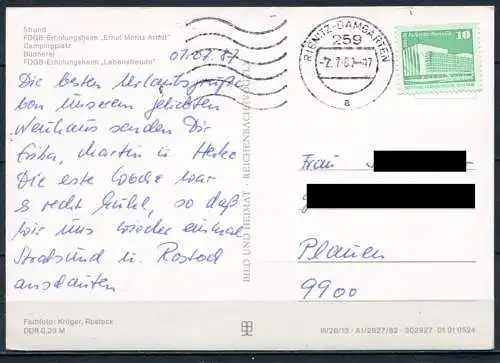 Strand
FDGB-Erholungsheim „Ernst Moritz Arndt"
Campingplatz
Büdnerei
FDGB-Erholungsheim „Lebensfreude"
01.07.87
Die besten Urlaubsgrüße
von unserem geliebten
Neuhaus senden Dir
Martin u. Heike
Die erste Woche war
es recht kühl, so daß
wir uns wieder einmal
Stralsund u. Rostock
anschauten
BILD UND HEIMAT · REICHENBACH
RIBNITZ-DAMGARTEN
259
a
10
Frau
Plauen
9900
Farbfoto: Kröger, Rostock
DDR 0,20 M
III/26/13 · A1/2927/82 · 302927 01 01 0524